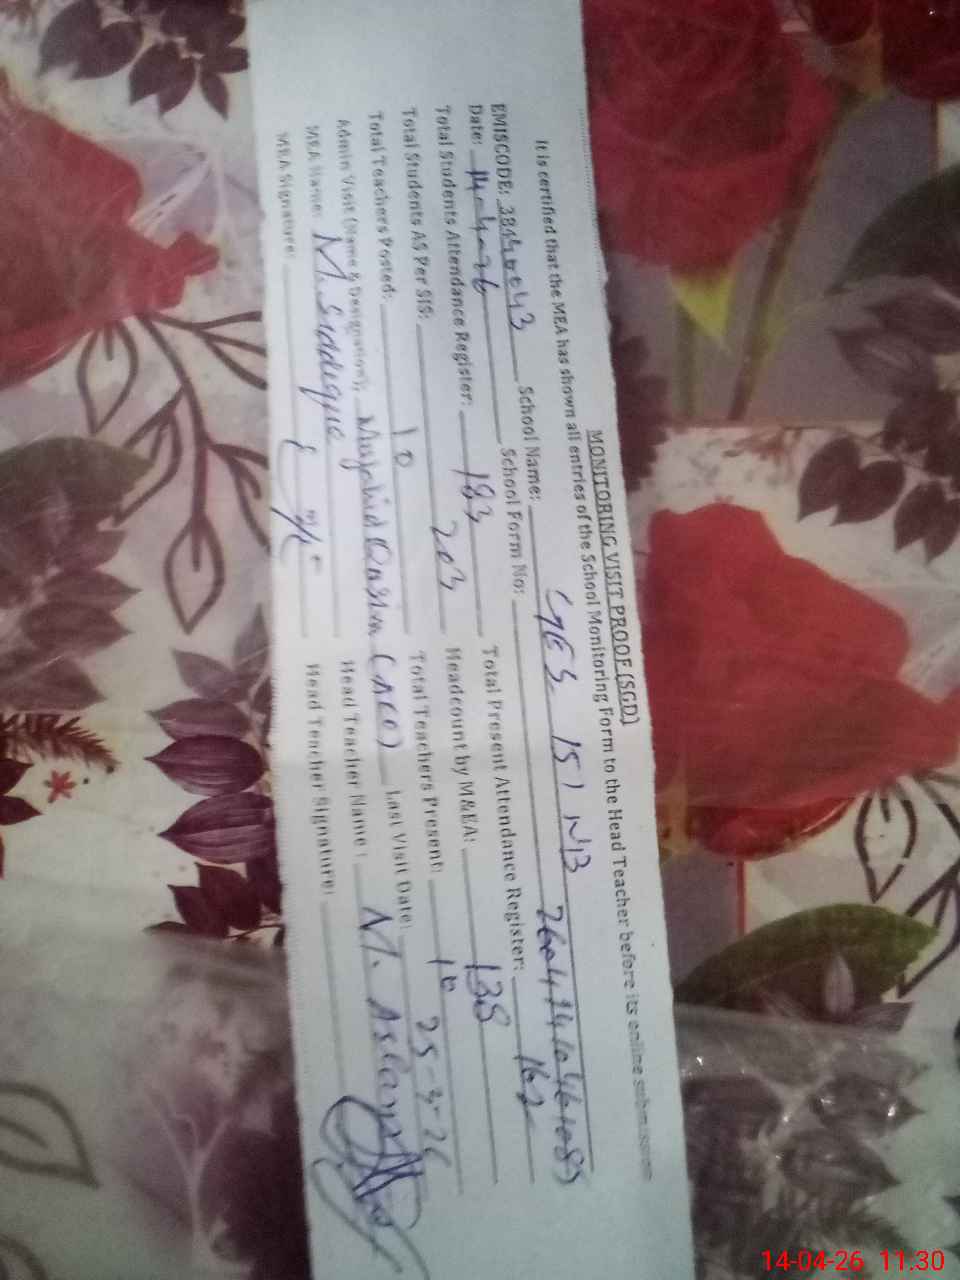 MONITORING VISIT PROOF (SGD)
It is certified that the MEA has shown all entries of the School Monitoring Form to the Head Teacher before its online submission
EMISCODE: School Name: GES 151 NB
Date: 14-4-26 School Form No:
Total Students Attendance Register: 183 Total Present Attendance Register: 162
Total Students AS Per SIS: 203 Headcount by M&EA: 138
Total Teachers Posted: 10 Total Teachers Present: 10
Admin Visit (Name & Designation): Mujahid Qasim (AEO) Last Visit Date: 25-3-26
MEA Name: M. Siddique Head Teacher Name: M. Aslam
MEA Signature: Head Teacher Signature:
14-04-26 11.30